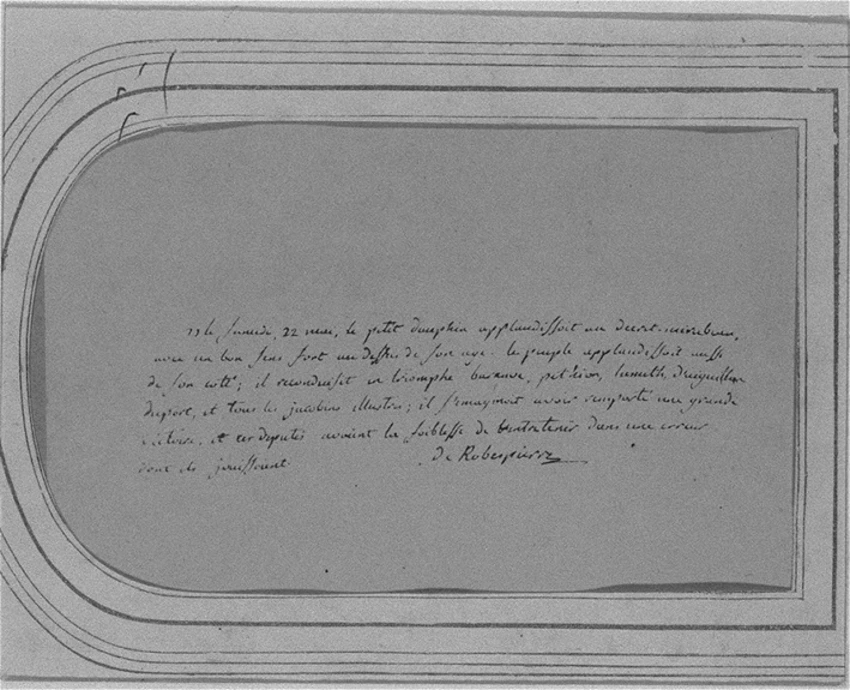 "le samedi, 22 mai, le petit dauphin applaudissoit au decret-mirabeau,
avec un bon sens fort au dessus de son age. le peuple applaudissoit aussi
de son coté; il reconduisit en triomphe barnave, pethion, lameth, d'aiguillon
duport, et tous les jacobins illustres; il s'imaginoit avoir remporté une grande
victoire, et ces deputés avoient la foiblesse de l'entretenir dans une erreur
dont ils jouissoient.
de Robespierre